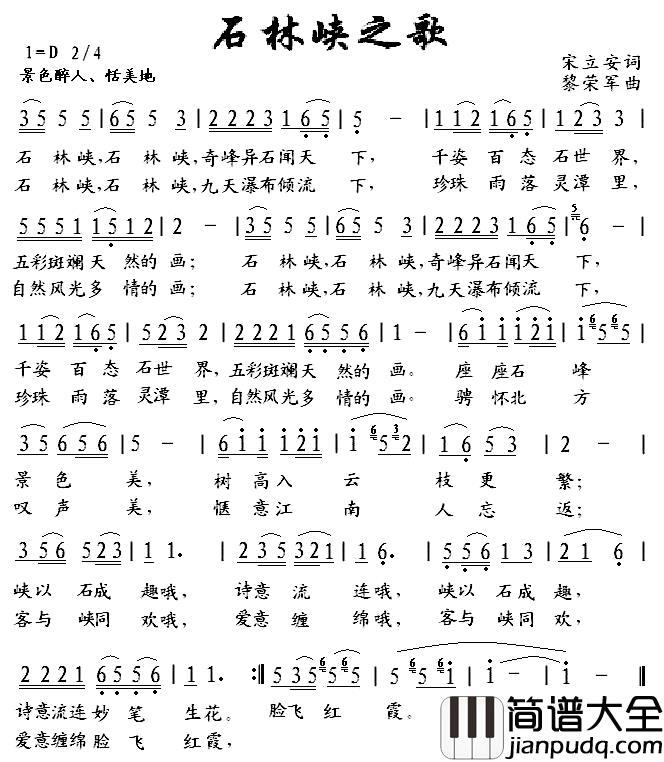 石林峡之歌
1=D 2/4
宋立安词
景色醉人、恬美地
黎荣军曲
3 5 5 5 | 6 5 5 5 | 2 2 2 3 1 6 5 | 5 - | 1 1 2 2 1 6 5 | 1 2 3 3 |
石 林 峡,石 林 峡,奇峰异石闻天 下, 千姿 百 态 石世 界,
石 林 峡,石 林 峡,九天瀑布倾流 下, 珍珠 雨 落 灵潭 里,
5 5 5 1 5 1 2 | 2 - | 3 5 5 5 | 6 5 5 5 | 2 2 2 3 1 6 5 | 6 - |
五彩斑斓天 然的 画; 石 林 峡,石 林 峡,奇峰异石闻天 下,
自然风光多 情的 画; 石 林 峡,石 林 峡,九天瀑布倾流 下,
千姿 百 态 石世 界,五彩斑斓天 然的 画。 座 座石 峰
珍珠 雨 落 灵潭 里,自然风光多 情的 画。 骋 怀北 方
景 色 美, 树 高入 云 枝 更 繁;
叹 声 美, 惬 意江 南 人 忘 返;
3 5 6 5 2 3 | 1 1. | 2 3 5 3 2 1 | 6 2. | 5 5 6 1 3 | 2 1 6 |
峡以 石成 趣哦, 诗意 流 连哦, 峡以 石成 趣,
客与 峡同 欢哦, 爱意 缠 绵哦, 客与 峡同 欢,
诗意流连 妙 笔 生花。 脸飞 红 霞。
爱意缠绵 脸 飞 红霞,
简谱大全
jianpudq.com